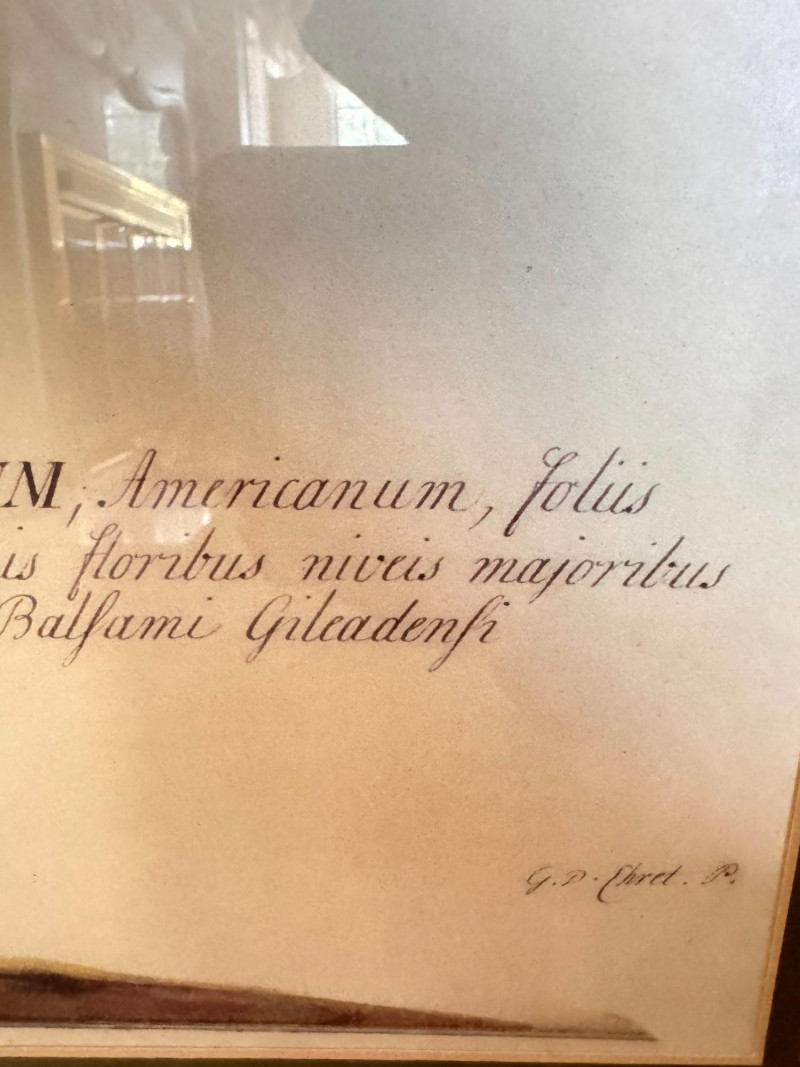 M, Americanum, foliis
is floribus niveis majoribus
Balſami Gileadenſi
G. D. Ehret. P.